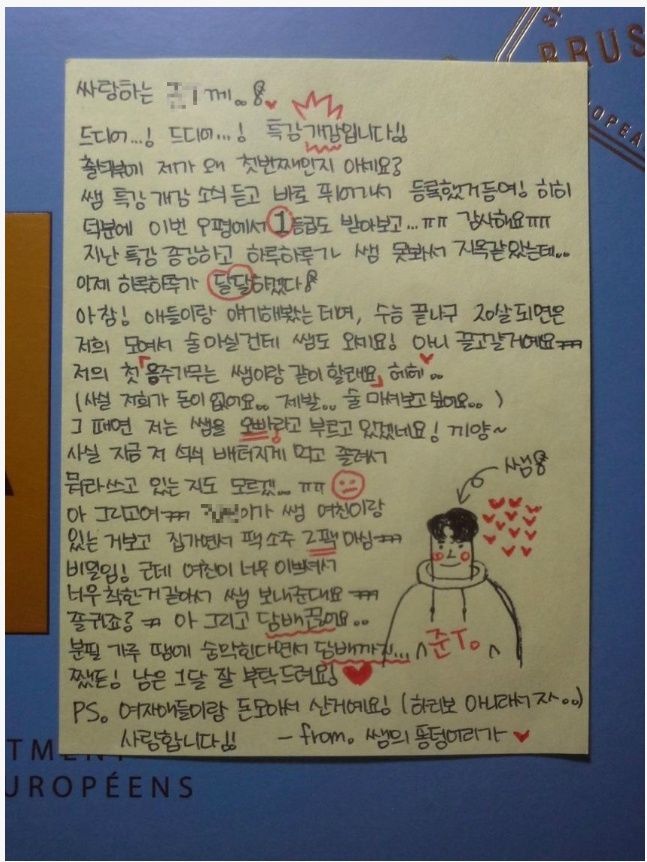 싸랑하는 께..
드디어...! 드디어...! 특강 개강입니다!!
출석부에 제가 왜 첫번째인지 아세요?
쌤 특강 개강 소식 듣고 바로 뛰어가서 등록했거등여! 히히
덕분에 이번 모평에서 1등급도 받아보고...ㅠㅠ 감사해요ㅠㅠ
지난 특강 종강하고 하루하루가 쌤 못봐서 지옥같았는데..
이제 하루하루가 달달하겠다
아 참! 애들이랑 얘기해봤는데여, 수능 끝나구 20살 되면은
저희 모여서 술 마실건데 쌤도 오세요! 아니 끌고갈거예요ㅋㅋㅋ
저의 첫 「음주가무는 쌤이랑 같이 할래요」 헤헤..
(사실 저희가 돈이 없어요.. 제발.. 술 마셔보고 싶어요..)
그 때면 저는 쌤을 오빠라고 부르고 있겠네요! 끼양~
사실 지금 저 석식 배터지게 먹고 졸려서
뭐라쓰고 있는 지도 모르겠...ㅠㅠ
아 그리고여ㅋㅋㅋ 이가 쌤 여친이랑
있는 거보고 집가면서 팩 소주 2팩 마심ㅋㅋㅋ
비밀임! 근데 여친이 너무 이쁘셔서
너무 착한거 같아서 쌤 보내준대요 ㅋㅋㅋ
쫌 귀죠? ㅋㅋ 아 그리고 담배끊어요..
분필 가루 땜에 숨막힌다면서 담배까지...
쨌든! 남은 그달 잘 부탁드려요! ♥
PS. 여자애들이랑 돈모아서 산거예요! (하리보 아니라서 자..)
사랑합니다!! - from. 쌤의 퐁텅이리가 ♥
쌤
준T.
BRUS
OPEA
A
TMENT
UROPÉENS